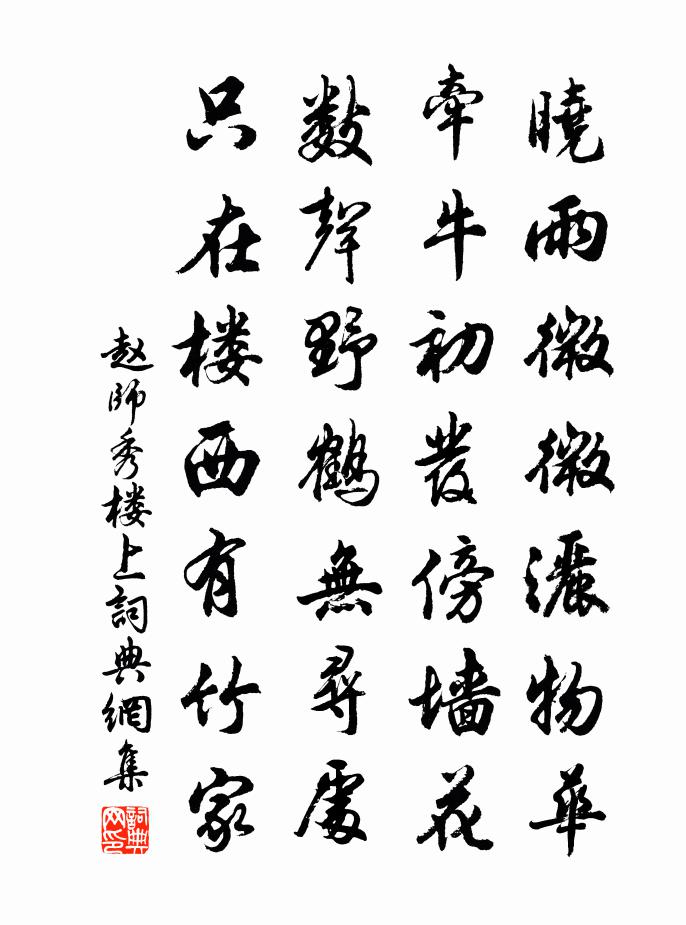 曉雨微微灑物華
牽牛初發傍墻花
数聲野鶴無尋處
只在楼西有竹家
赵師秀楼上詞典網集
詞典网印